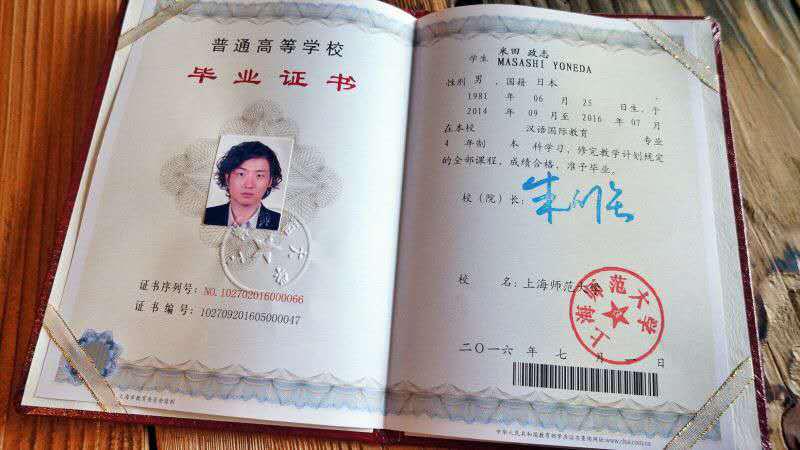 普通高等学校
毕业证书
证书序列号: NO. 102702016000066
证书编号: 102709201605000047
上海市教育委员会监制
学生 米田 政志
MASASHI YONEDA
性别 男 , 国籍 日本
1981 年 06 月 25 日生, 于
2014 年 09 月至 2016 年 07 月
在本校 汉语国际教育 专业
4 年制 本 科学习, 修完教学计划规定
的全部课程, 成绩合格, 准予毕业。
校(院)长:
校 名: 上海师范大学
上海师范大学
二〇一六 年 七 月 一 日